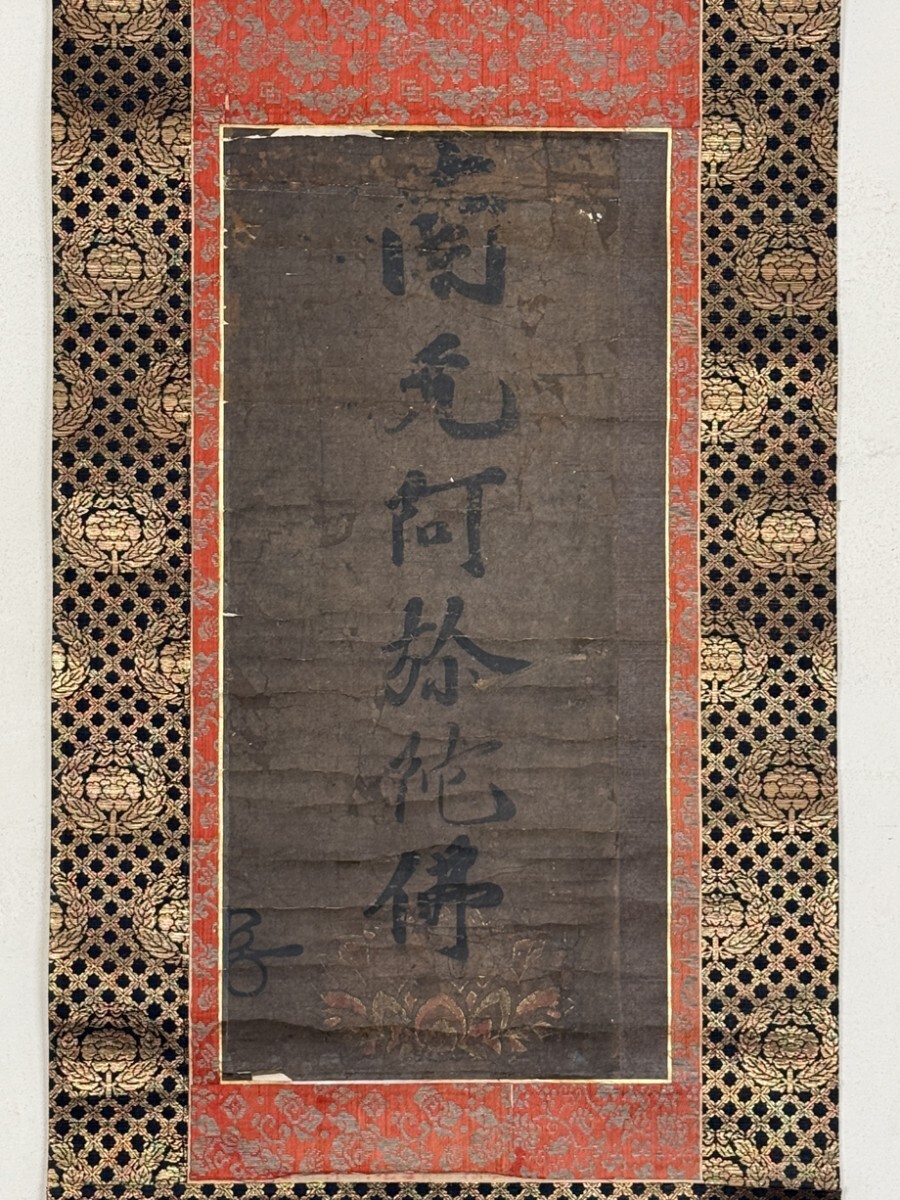 南无阿弥陀佛